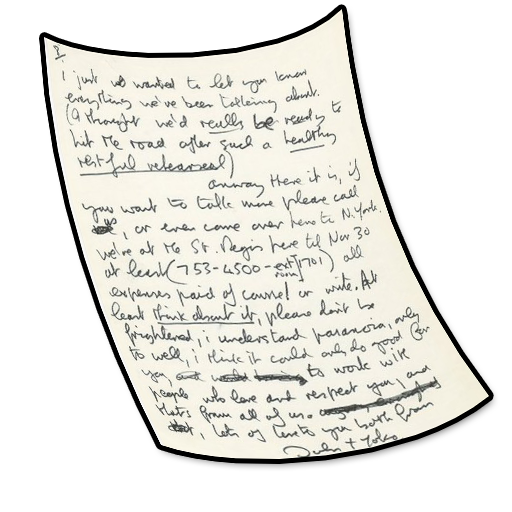 8.
i just wanted to let you know
everything we've been talking about.
(i thought we'd really be ready to
hit the road after such a healthy
restful rehearsal)
anyway there it is, if
you want to talk more please call
us, or even come over here to N. York.
we're at the St. Regis here til Nov 30
at least (753-4500-ext/room 1701) all
expenses paid of course! or write. At
least think about it, please don't be
frightened, i understand paranoia, only
to well, i think it could only do good for
you, to work with
people who love and respect you, and
that's from all of us.
, lots of love to you both from
John + Yoko